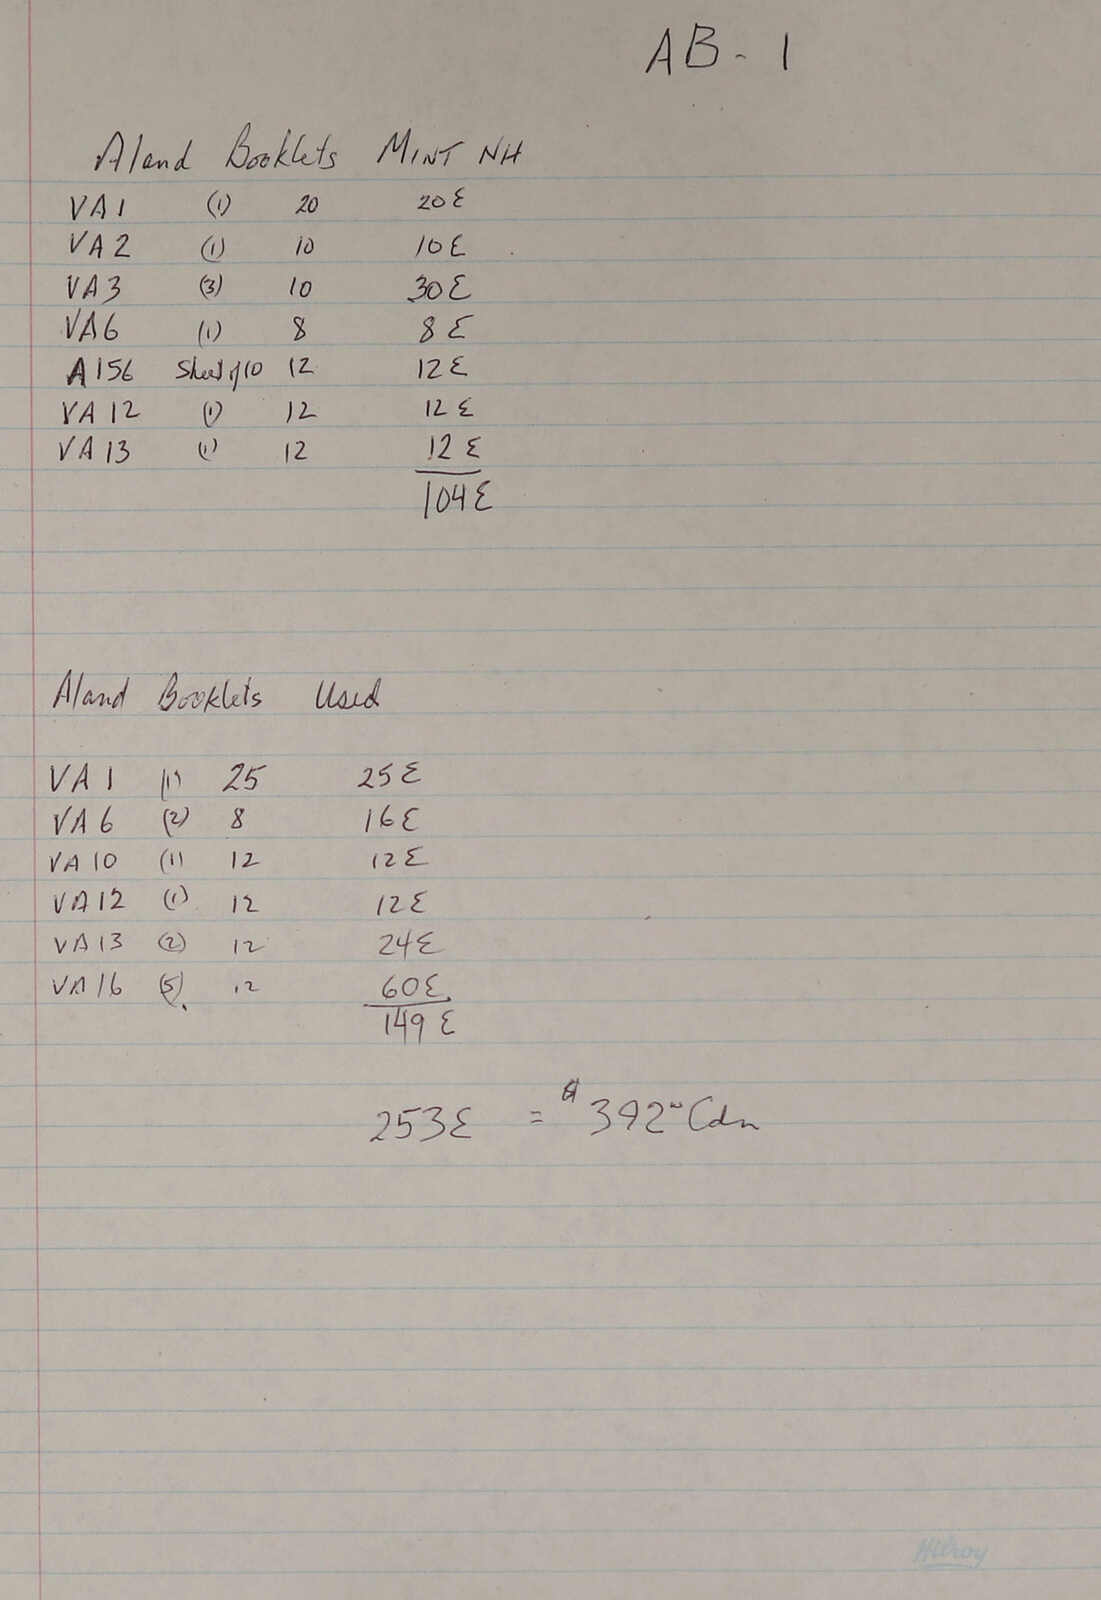 AB-1
Aland Booklets MINT NH
VA1 (1) 20 20€
VA2 (1) 10 10€
VA3 (3) 10 30€
VA6 (1) 8 8€
A156 Sheet of 10 12 12€
VA12 (1) 12 12€
VA13 (1) 12 12€
104€
Aland Booklets Used
VA1 (1) 25 25€
VA6 (2) 8 16€
VA10 (1) 12 12€
VA12 (1) 12 12€
VA13 (2) 12 24€
VA16 (5) 12 60€
149€
253€ = $392⁰⁰ Cdn
Hilroy